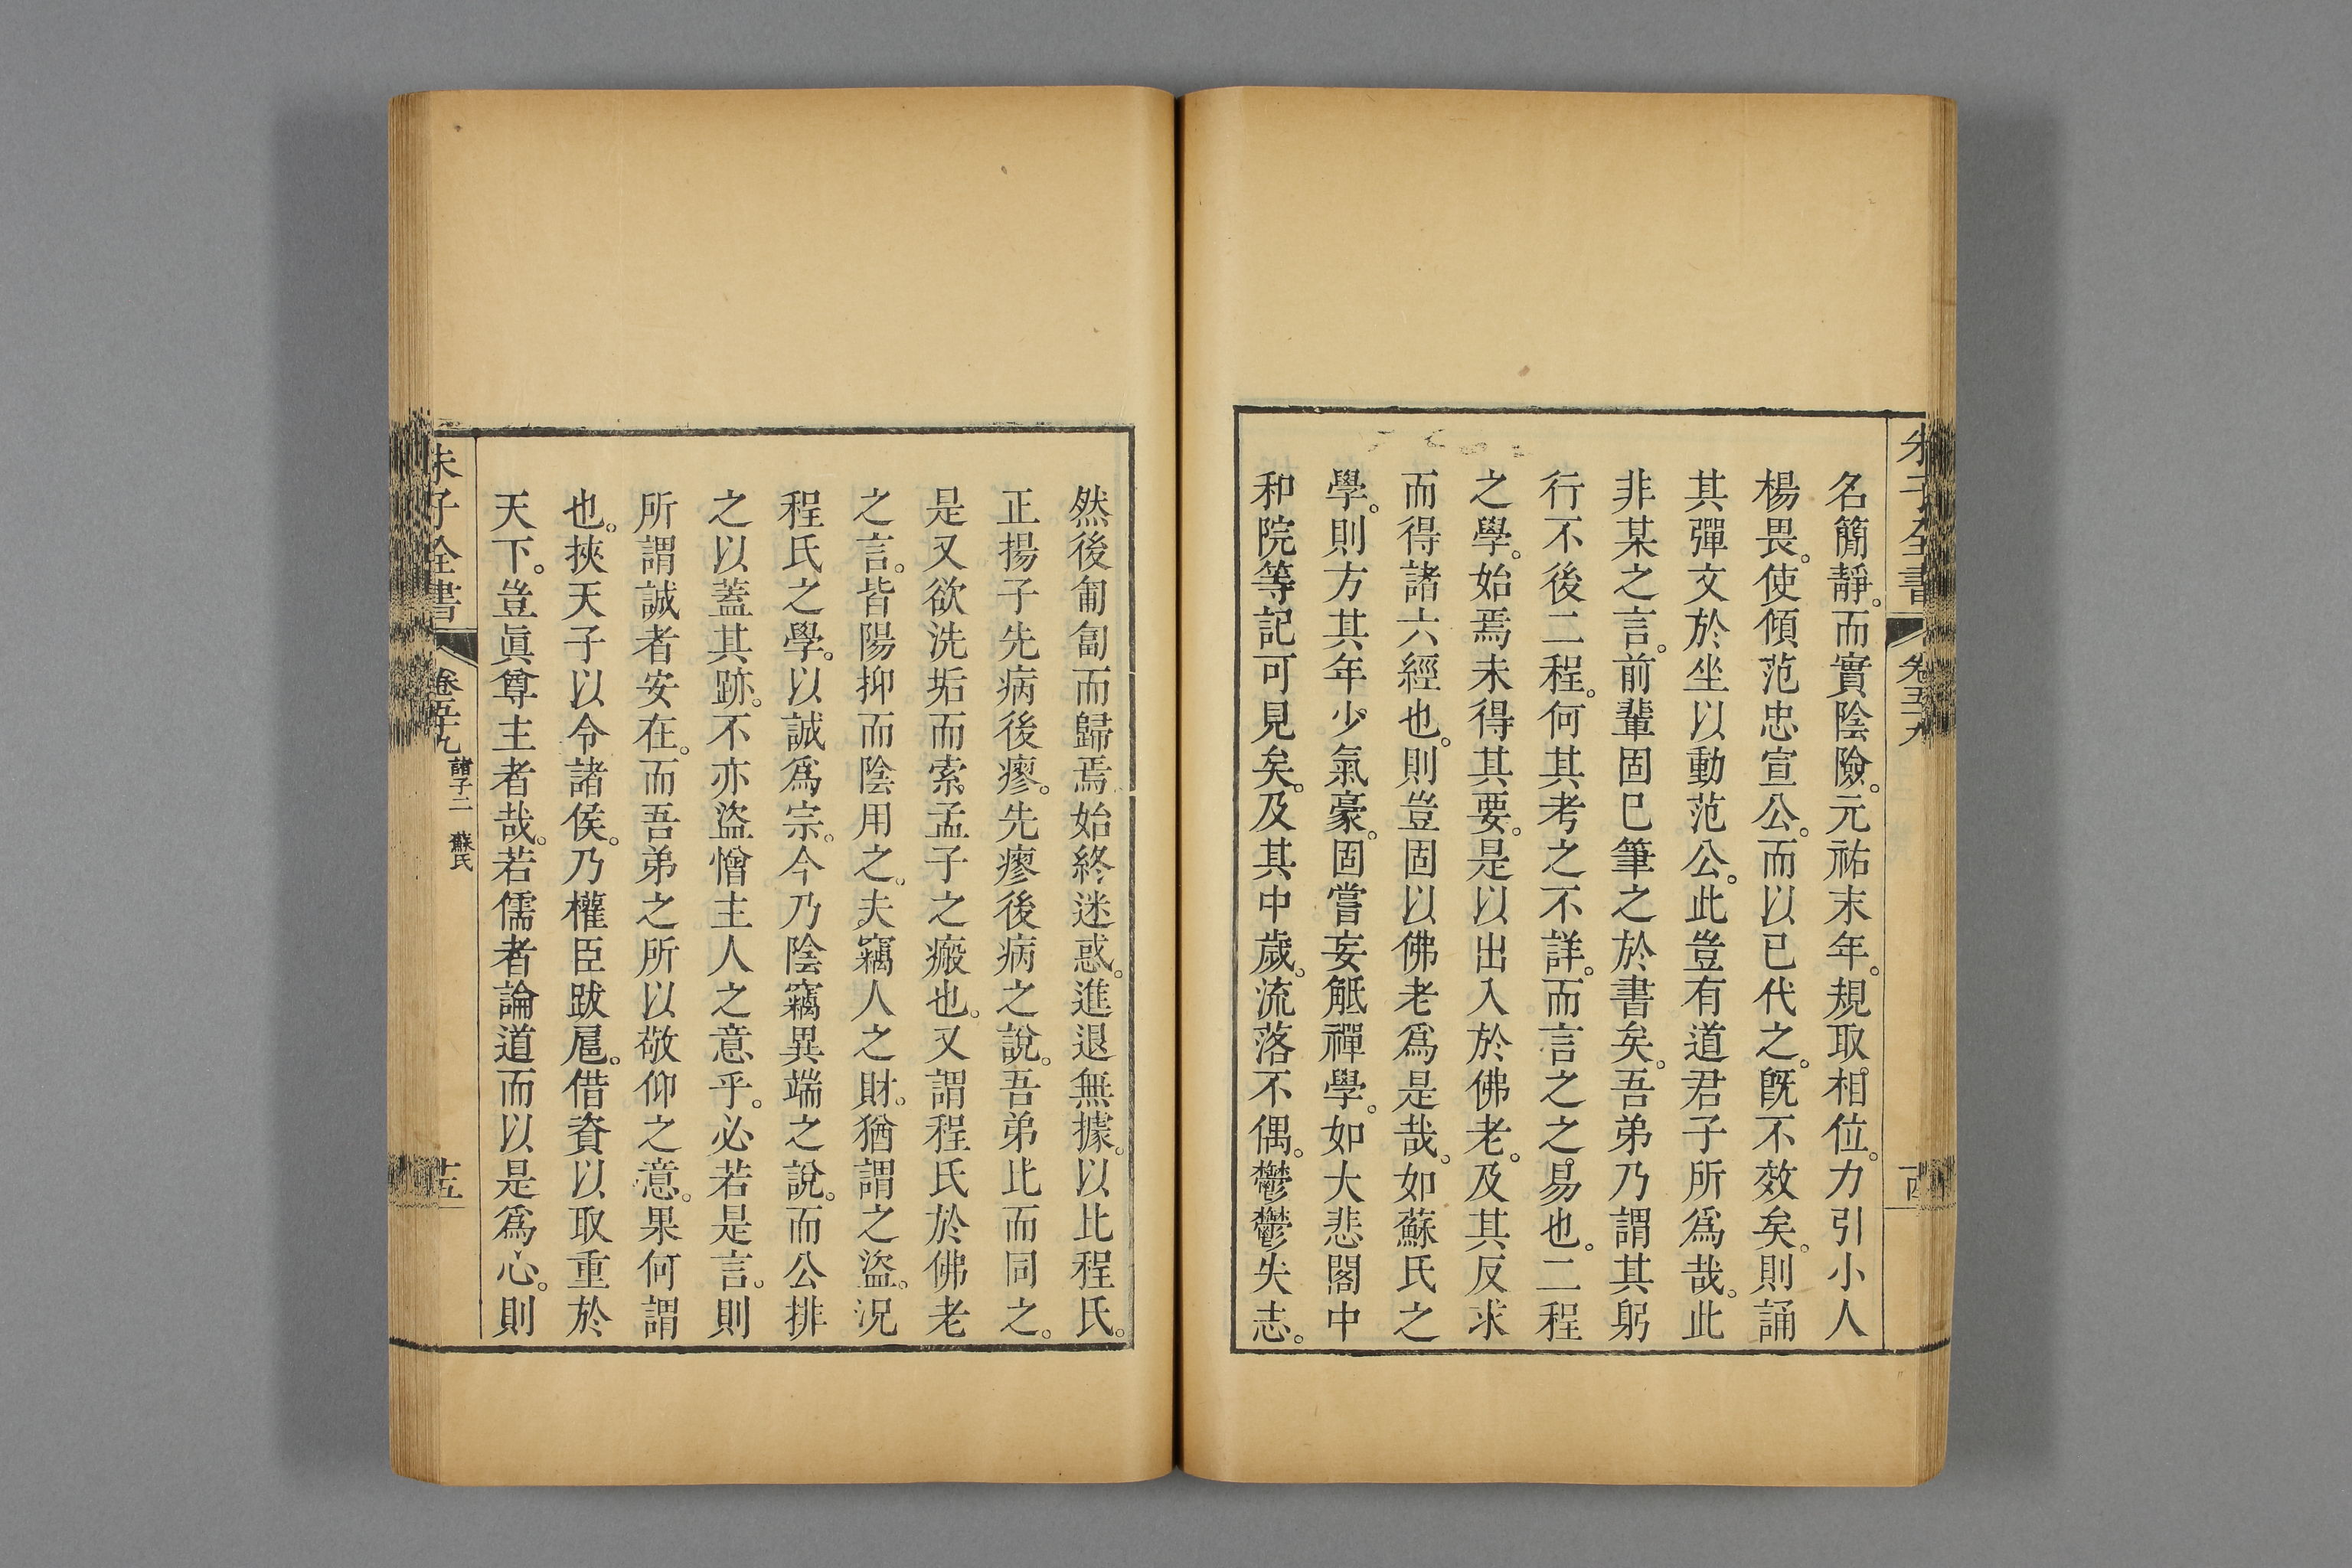 朱子全書 卷五十九
名簡靜。而實陰險。元祐末年。規取相位。力引小人
楊畏。使傾范忠宣公。而以已代之。旣不效矣。則誦
其彈文於坐以動范公。此豈有道君子所爲哉。此
非某之言。前輩固已筆之於書矣。吾弟乃謂其躬
行不後二程。何其考之不詳。而言之之易也。二程
之學。始焉未得其要。是以出入於佛老。及其反求
而得諸六經也。則豈固以佛老爲是哉。如蘇氏之
學。則方其年少氣豪。固嘗妄觝禪學。如大悲閣中
和院等記可見矣。及其中歲。流落不偶。鬱鬱失志。
然後匍匐而歸焉始終迷惑。進退無據。以比程氏。
正揚子先病後瘳。先瘳後病之說。吾弟比而同之。
是又欲洗垢而索孟子之瘢也。又謂程氏於佛老
之言。皆陽抑而陰用之。夫竊人之財。猶謂之盜。况
程氏之學。以誠爲宗。今乃陰竊異端之說。而公排
之以蓋其跡。不亦盜憎主人之意乎。必若是言。則
所謂誠者安在。而吾弟之所以敬仰之意。果何謂
也。挾天子以令諸侯。乃權臣跋扈。借資以取重於
天下。豈眞尊主者哉。若儒者論道而以是爲心。則
朱子全書 卷五十九 諸子二 蘇氏